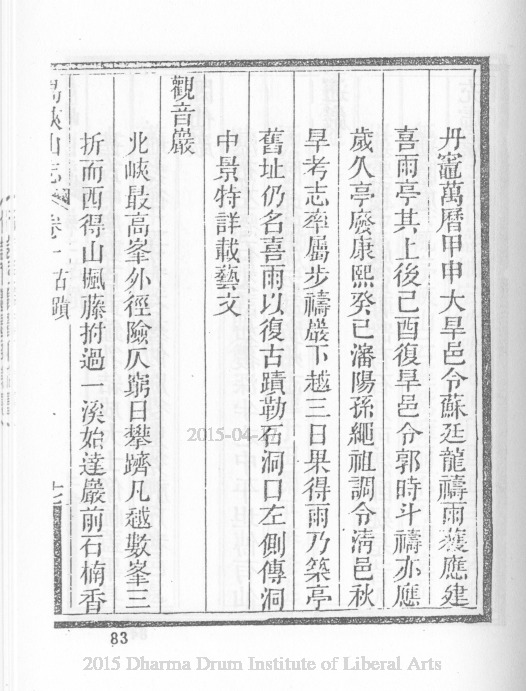 丹竈萬曆甲申大旱邑令蘇廷龍禱雨獲應建
喜雨亭其上後己酉復旱邑令郭時斗禱亦應
歲久亭廢康熙癸巳瀋陽孫繩祖調令淸邑秋
旱考志率屬步禱巖下越三日果得雨乃築亭
舊址仍名喜雨以復古蹟勒石洞口左側傳洞
中景特詳載藝文
觀音巖
北峽最高峯外徑險仄窮日攀躋凡越數峯三
折而西得山楓藤拊過一溪始達巖前石楠香
峽山志 卷一 古蹟
2015-04-
83
2015 Dharma Drum Institute of Liberal Arts